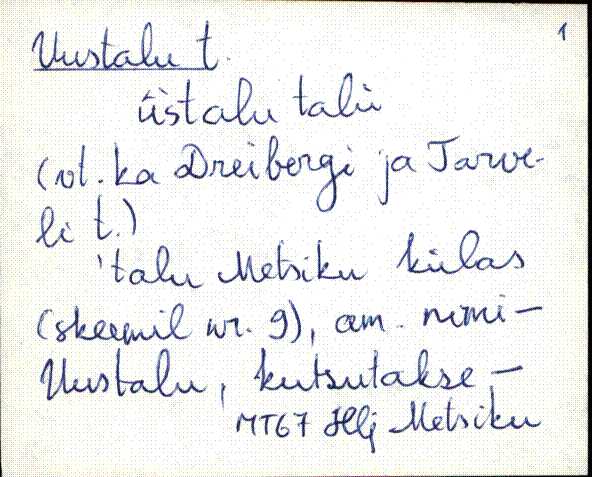 1
Uustalu t.
üstalu talu
(vt. ka Dreibergi ja Tarve-
li t.)
'talu Metsiku külas
(skeemil nr. 9), am. nimi –
Uustalu, kutsutakse –
MT67 Hlj Metsiku